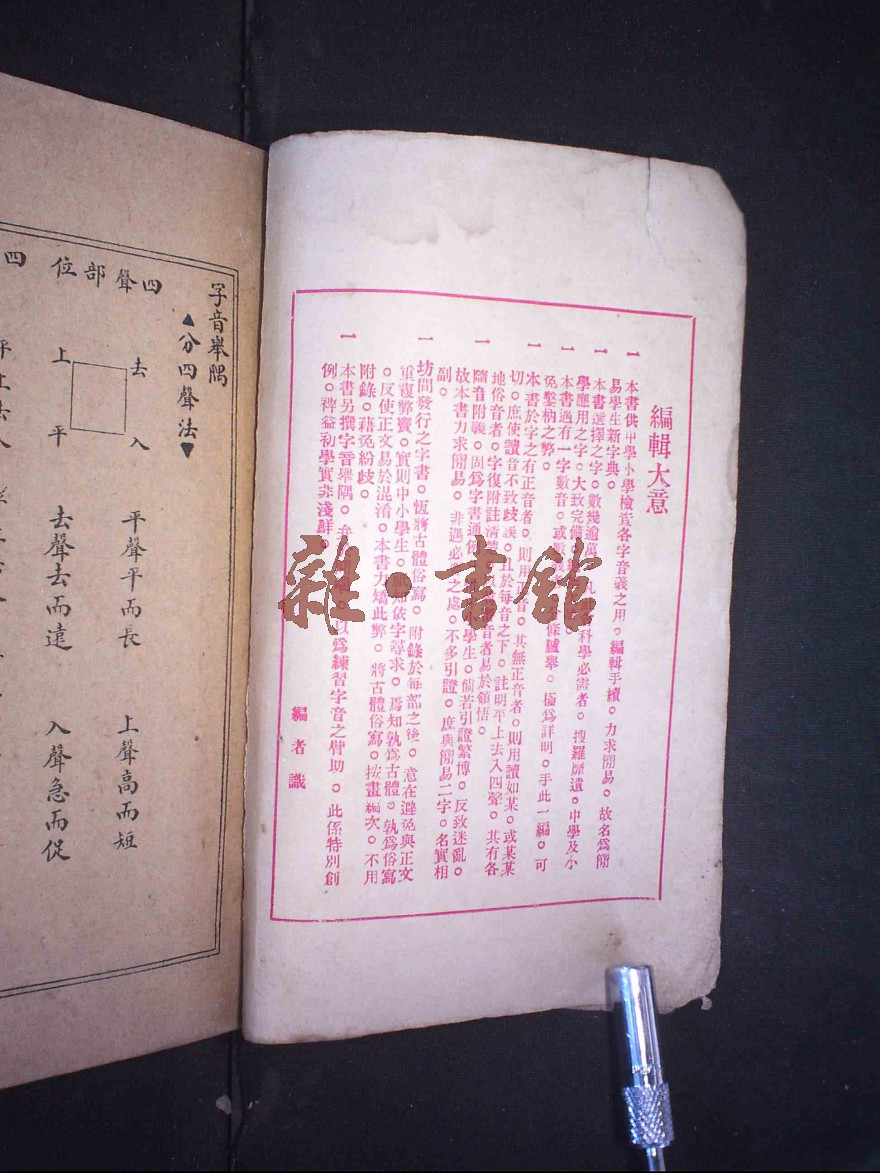 編輯大意
一 本書供中學小學檢查各字音義之用。編輯手續。力求簡易。故名爲簡
易學生新字典。
一 本書選擇之字。數幾逾萬。凡 科學必需者。搜羅靡遺。中學及小
學應用之字。大致完備。
一 本書遇有一字數音。或 條臚舉。極爲詳明。手此一編。可
免鑿枘之弊。
一 本書於字之有正音者。則用正音。其無正音者。則用讀如某。或某某
切。庶使讀音不致歧誤。且於每音之下。註明平上去入四聲。其有各
地俗音者。字復附註 音者易於領悟。
一 隨音附義。固爲字書通例。 學生。倘若引證繁博。反致迷亂。
故本書力求簡易。非遇必 之處。不多引證。庶與簡易二字。名實相
副。
一 坊間發行之字書。恆將古體俗寫。附錄於每部之後。意在避免與正文
重複弊竇。實則中小學生。 知依字尋求。焉知孰爲古體。孰爲俗寫
。反使正文易於混淆。本書力矯此弊。將古體俗寫。按畫編次。不用
附錄。藉免紛歧。
一 本書另撰字音舉隅。弁 以爲練習字音之臂助。此係特別創
例。裨益初學實非淺鮮。
編者識
雜·書館
字音舉隅
▲分四聲法▼
四聲部位
去 入
上 平
平聲平而長 上聲高而短
去聲去而遠 入聲急而促
四
平上去入